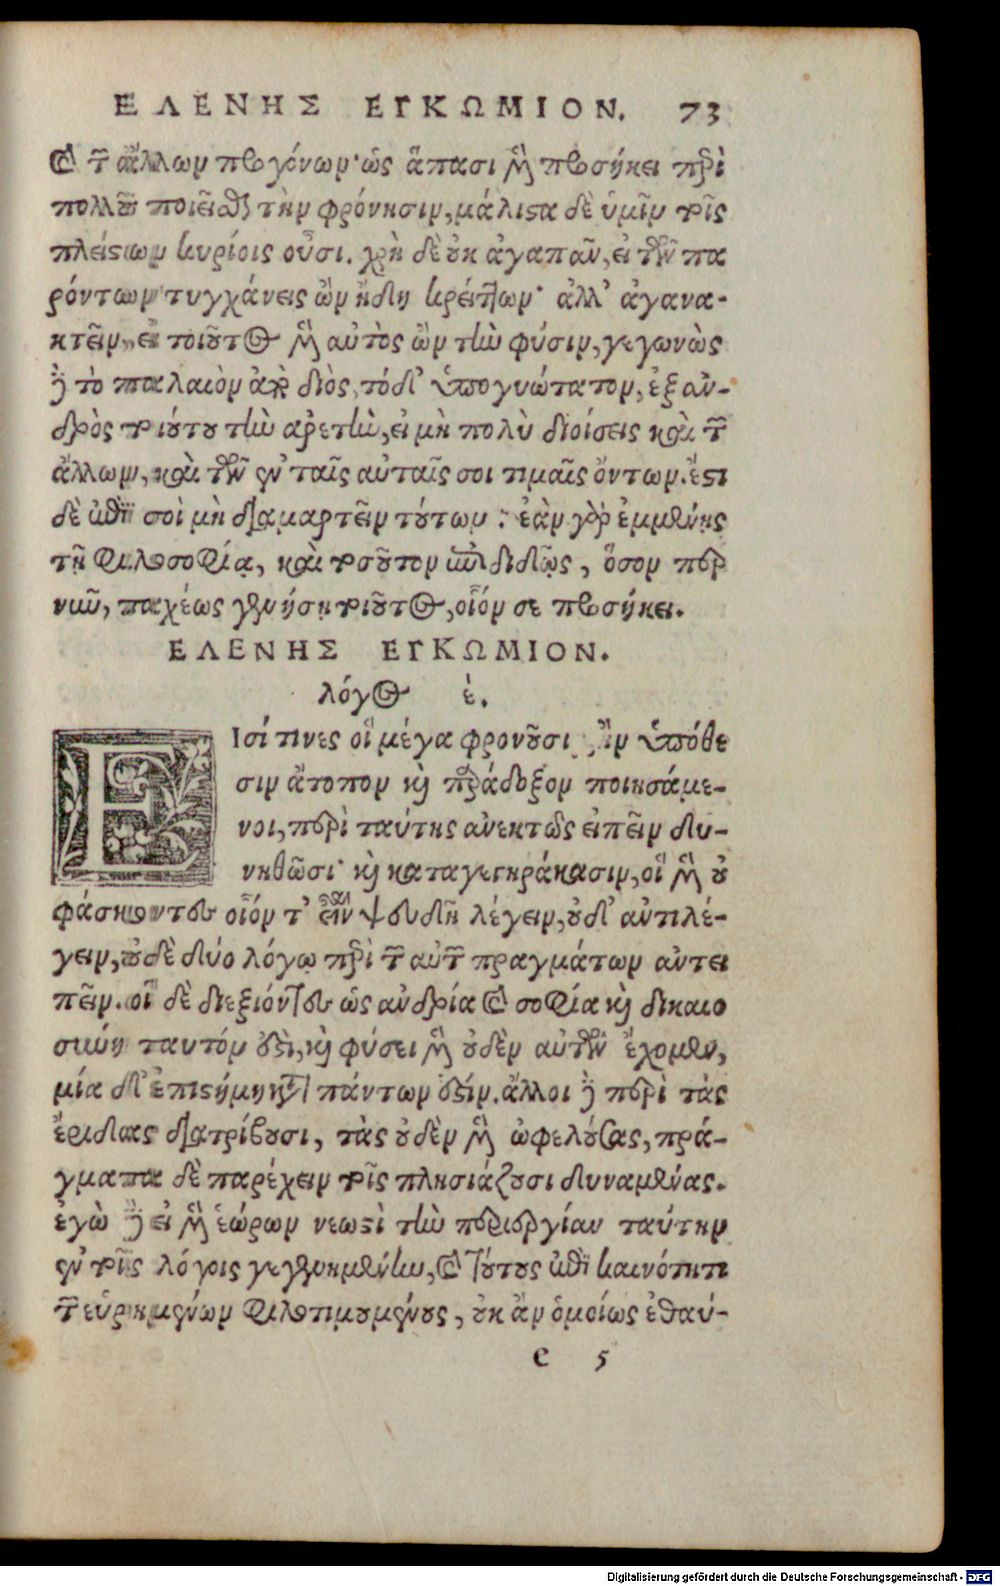 ΕΛΕΝΗΣ ΕΓΚΩΜΙΟΝ. 73
καὶ τῶν ἄλλων προγόνων· ὡς ἅπασι μὲν προσήκει περὶ
πολλοῦ ποιεῖσθαι τὴν φρόνησιν, μάλιστα δὲ ὑμῖν τοῖς
πλείστων κυρίοις οὖσι. χρὴ δὲ οὐκ ἀγαπᾶν, εἰ τῶν πα
ρόντων τυγχάνεις ὢν ἤδη κρείττων· ἀλλ' ἀγανα-
κτεῖν, εἰ τοιοῦτος μὲν αὐτὸς ὢν τὴν φύσιν, γεγωνὼς
δὲ τὸ παλαιὸν ἀπὸ διὸς, τὸ δ' ὑπογυώτατον, ἐξ ἀν-
δρὸς τοιούτου τὴν ἀρετὴν, εἰ μὴ πολὺ διοίσεις καὶ τῶν
ἄλλων, καὶ τῶν ἐν ταῖς αὐταῖς σοι τιμαῖς ὄντων. ἔστι
δὲ ἐπὶ σοὶ μὴ διαμαρτεῖν τούτων· ἐὰν γὰρ ἐμμένῃς
τῇ φιλοσοφίᾳ, καὶ τοσοῦτον ἐπιδιδῷς, ὅσον περ
νῦν, ταχέως γενήσῃ τοιοῦτος, οἷόν σε προσήκει.
ΕΛΕΝΗΣ ΕΓΚΩΜΙΟΝ.
λόγος ἑ.
ΕΙσί τινες οἳ μέγα φρονοῦσι ἢν ὑπόθε
σιν ἄτοπον καὶ παράδοξον ποιησάμε-
νοι, περὶ ταύτης ἀνεκτῶς εἰπεῖν δυ-
νηθῶσι· καὶ καταγεγηράκασιν, οἳ μὲν οὐ
φάσκοντες οἷόν τ' εἶναι ψευδῆ λέγειν, οὐδ' ἀντιλέ-
γειν, οὐδὲ δύο λόγω περὶ τῶν αὐτῶν πραγμάτων ἀντει
πεῖν. οἳ δὲ διεξιόντες ὡς ἀνδρία καὶ σοφία καὶ δικαιο
σύνη ταυτόν ἐστι, καὶ φύσει μὲν οὐδὲν αὐτῶν ἔχομεν,
μία δ' ἐπιστήμη κατὰ πάντων ἐστίν. ἄλλοι δὲ περὶ τὰς
ἔριδας διατρίβουσι, τὰς οὐδὲν μὲν ὠφελούσας, πρά-
γματα δὲ παρέχειν τοῖς πλησιάζουσι δυναμένας.
ἐγὼ δὲ εἰ μὲν ἑώρων νεωστὶ τὴν περιεργίαν ταύτην
ἐν τοῖς λόγοις γεγενημένην, καὶ τούτους ἐπὶ καινότητι
τῶν εὑρημένων φιλοτιμουμένους, οὐκ ἂν ὁμοίως ἐθαύ-
e 5
Digitalisierung gefördert durch die Deutsche Forschungsgemeinschaft - DFG